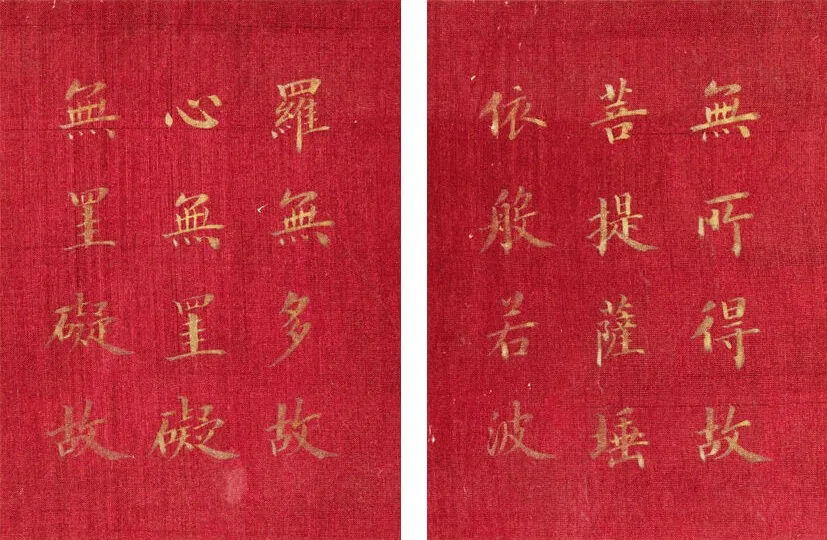 無所得故
菩提薩埵
依般若波
羅無多故
心無罣礙
無罣礙故